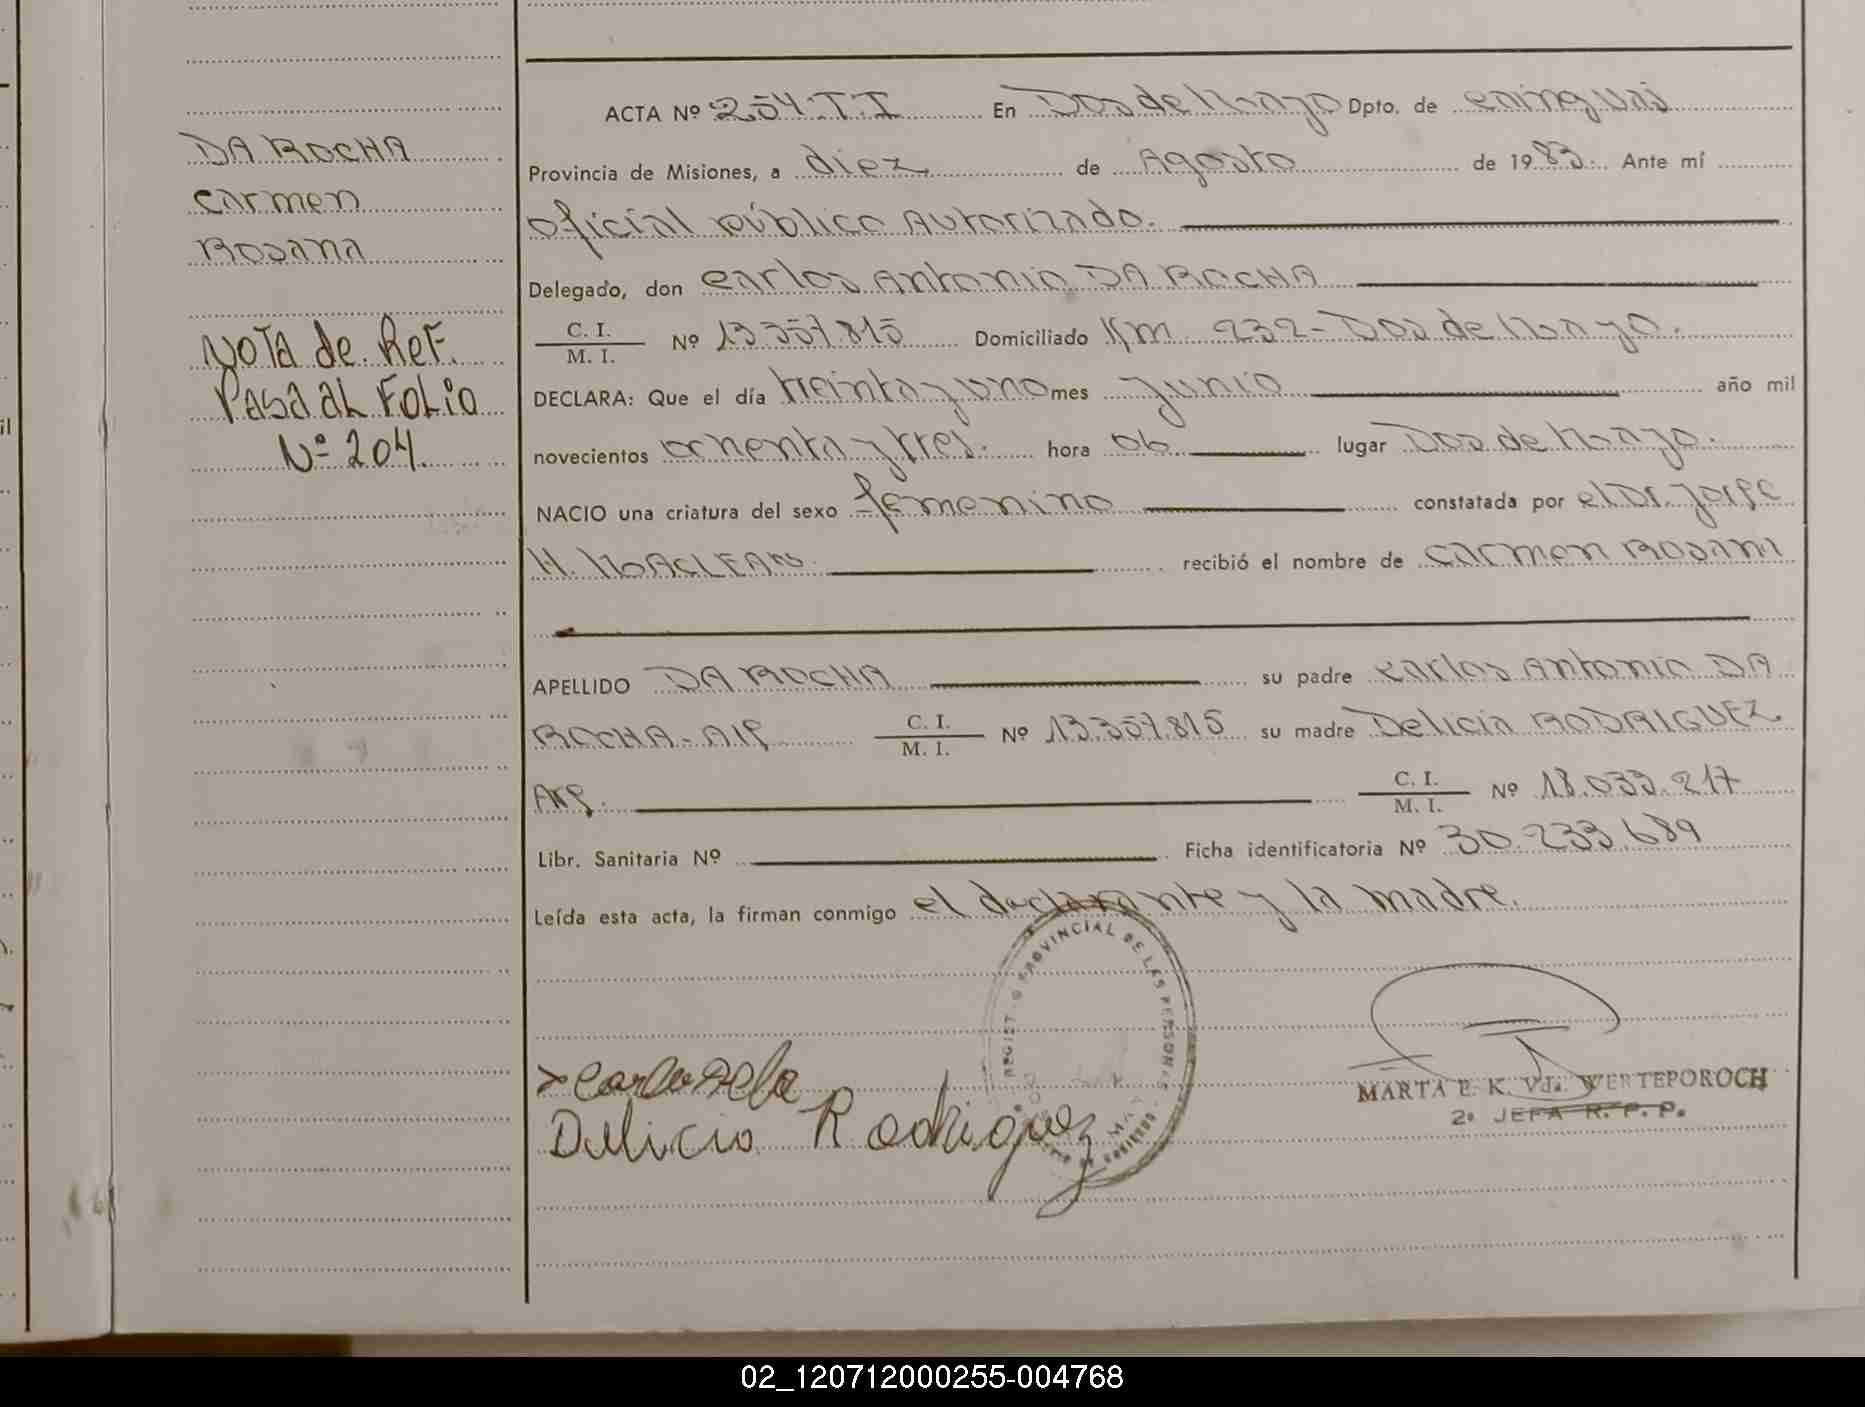 DA ROCHA
Carmen
Rosana
NOTA de Ref.
Pasa al FOLIO
Nº 204.
ACTA Nº 254.T.I En Dos de Mayo Dpto. de Cainguás
Provincia de Misiones, a diez de Agosto de 1983. Ante mí
Oficial Público Autorizado.
Delegado, don Carlos Antonio DA ROCHA
C. I.
M. I. Nº 13.357.815 Domiciliado Km. 232-Dos de Mayo.
DECLARA: Que el día treinta y uno mes Junio año mil
novecientos ochenta y tres. hora 06 lugar Dos de Mayo.
NACIO una criatura del sexo femenino constatada por el Dr. Jorge
H. MACLEAN. recibió el nombre de Carmen Rosana
APELLIDO DA ROCHA su padre Carlos Antonio DA
ROCHA-Arg. C. I.
M. I. Nº 13.357.815 su madre Delicia RODRIGUEZ
Arg. C. I.
M. I. Nº 18.033.217
Libr. Sanitaria Nº Ficha identificatoria Nº 30.233.689
Leída esta acta, la firman conmigo el declarante y la madre.
PROVINCIAL DE LAS PERSONAS
Delicia Rodriguez
MARTA E. K. WERTEPOROCH
2º JEFA R. P. P.
02_120712000255-004768